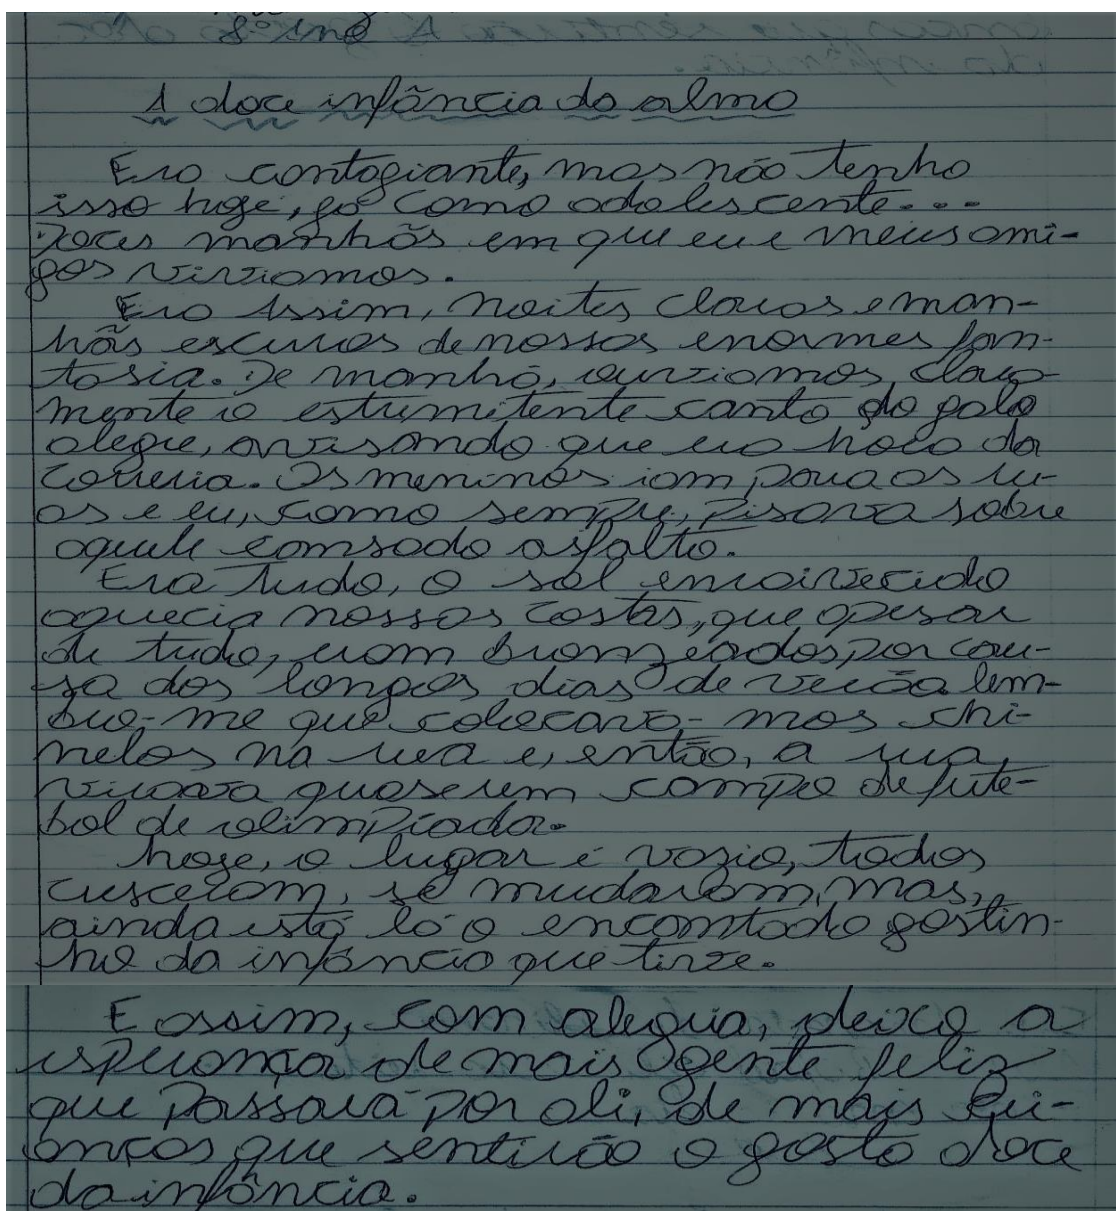 8º ano A
A doce infância da alma
Era contagiante, mas não tenho
isso hoje, já como adolescente...
Doces manhãs em que eu e meus ami-
gos vivíamos.
Era Assim, noites claras e man-
hãs escuras de nossas enormes fan-
tasia. De manhã, ouvíamos, clara-
mente o estrumitente canto do galo
alegre, avisando que era hora da
correria. Os meninos iam para as ru-
as e eu, como sempre, pisava sobre
aquele camsado asfalto.
Era tudo, o sol enraivecido
aquecia nossas costas, que apesar
de tudo, eram bronzeadas, por cau-
sa dos longos dias de verão lem-
bro-me que colocava-mos chi-
nelos na rua e, então, a rua,
virava quase um campo de fute-
bol de olimpíada.
hoje, o lugar é vazio, todos
cresceram, se mudaram, mas,
ainda está lá o encomtado gostin-
ho da infância que tive.
E assim, com alegria, deixo a
esperança de mais gente feliz
que passará por ali, de mais cri-
anças que sentirão o gosto doce
da infância.